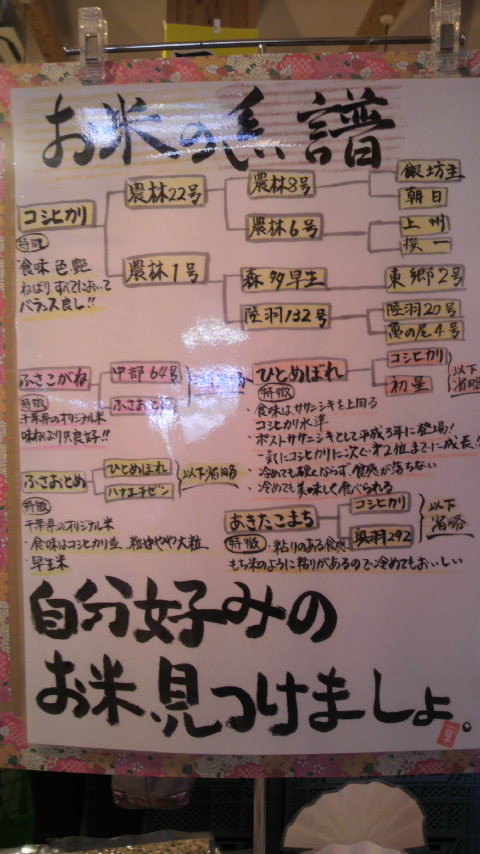 お米の系譜
コシヒカリ
特徴
食味 色 艶
ねばり すべてにおいて
バランス良し!!
農林22号
農林1号
農林8号
農林6号
森多早生
陸羽132号
銀坊主
朝日
上州
撰一
東郷2号
陸羽20号
亀の尾4号
ふさこがね
特徴
千葉県のオリジナル米
味ねばり共良好!!
中部64号
ふさおとめ
ひとめぼれ
コシヒカリ
初星
以下
省略
特徴
・食味はササニシキを上回る
コシヒカリ水準
・ポストササニシキとして平成3年に登場!
一気にコシヒカリに次ぐ第2位までに成長!
・冷めても硬くならず 食感が落ちない
・冷めても美味しく食べられる
ふさおとめ
ひとめぼれ
ハナエチゼン
以下省略
特徴
千葉県のオリジナル米
・食味はコシヒカリ並 粒はやや大粒
・早生米
あきたこまち
コシヒカリ
奥羽292
以下
省略
特徴
・粘りのある食感
もち米のように粘りがあるので冷めてもおいしい
自分好みの
お米、見つけましょ。